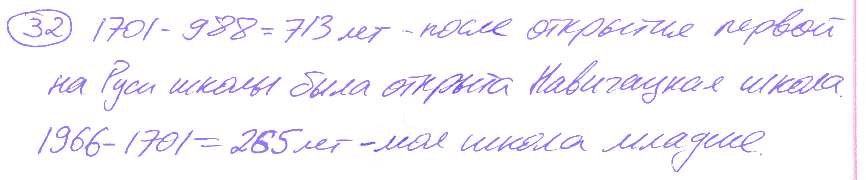 32 1701 - 988 = 713 лет - после открытия первой
на Руси школы была открыта Навигацкая школа.
1966 - 1701 = 265 лет - моя школа младше.